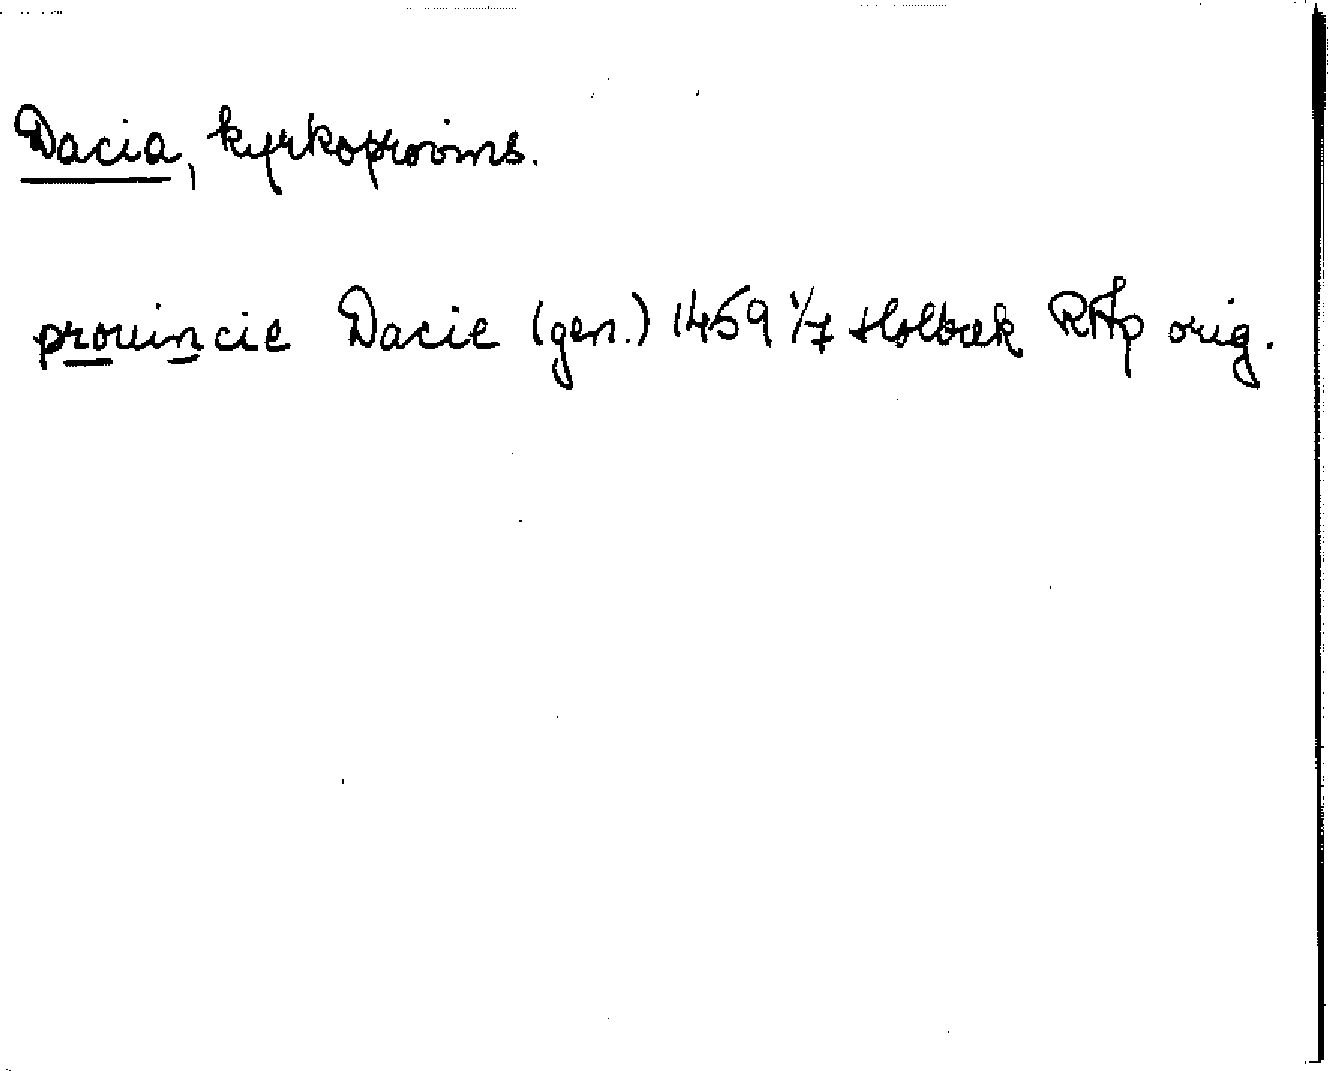 Dacia, kyrkoprovins.
prouincie Dacie (gen.) 1459 1/7 Holbæk RAp orig.